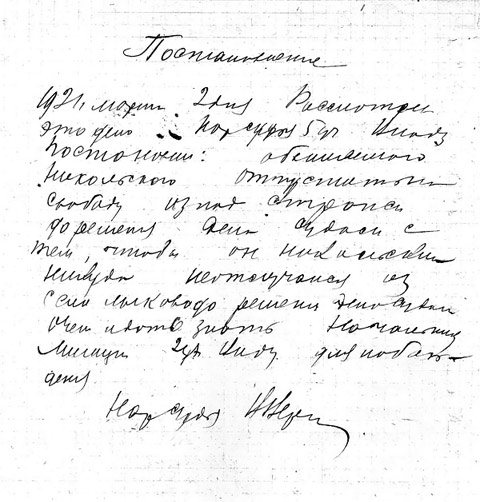 Постановление
1921, марта 2 дня Рассмотрев
это дело Нарсудья 5 уч
Постановил: обвиняемого
Никольского отпустить на
свободу из под стражи
до решения дела судом с
тем, чтобы он Никольский
никуда неотлучался из
села до решения дела судом
О чем дать знать Начальнику
Милиции 2 уч. для наблю-
дения
Нар судья